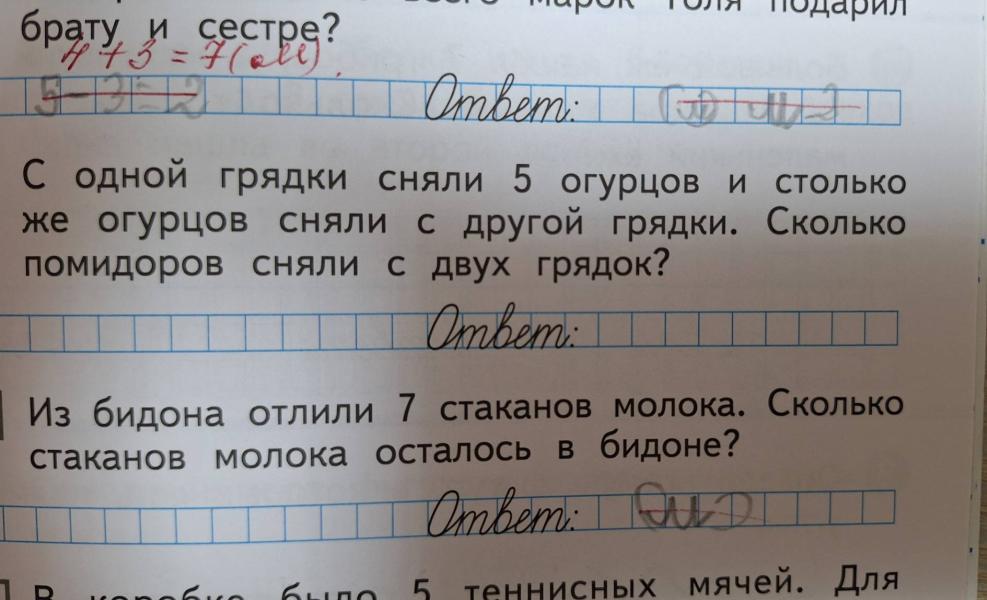 всего марок Толя подарил
брату и сестре?
4+3=7(м).
5-3=2 Ответ:
С одной грядки сняли 5 огурцов и столько
же огурцов сняли с другой грядки. Сколько
помидоров сняли с двух грядок?
Ответ:
Из бидона отлили 7 стаканов молока. Сколько
стаканов молока осталось в бидоне?
Ответ:
В коробке было 5 теннисных мячей. Для